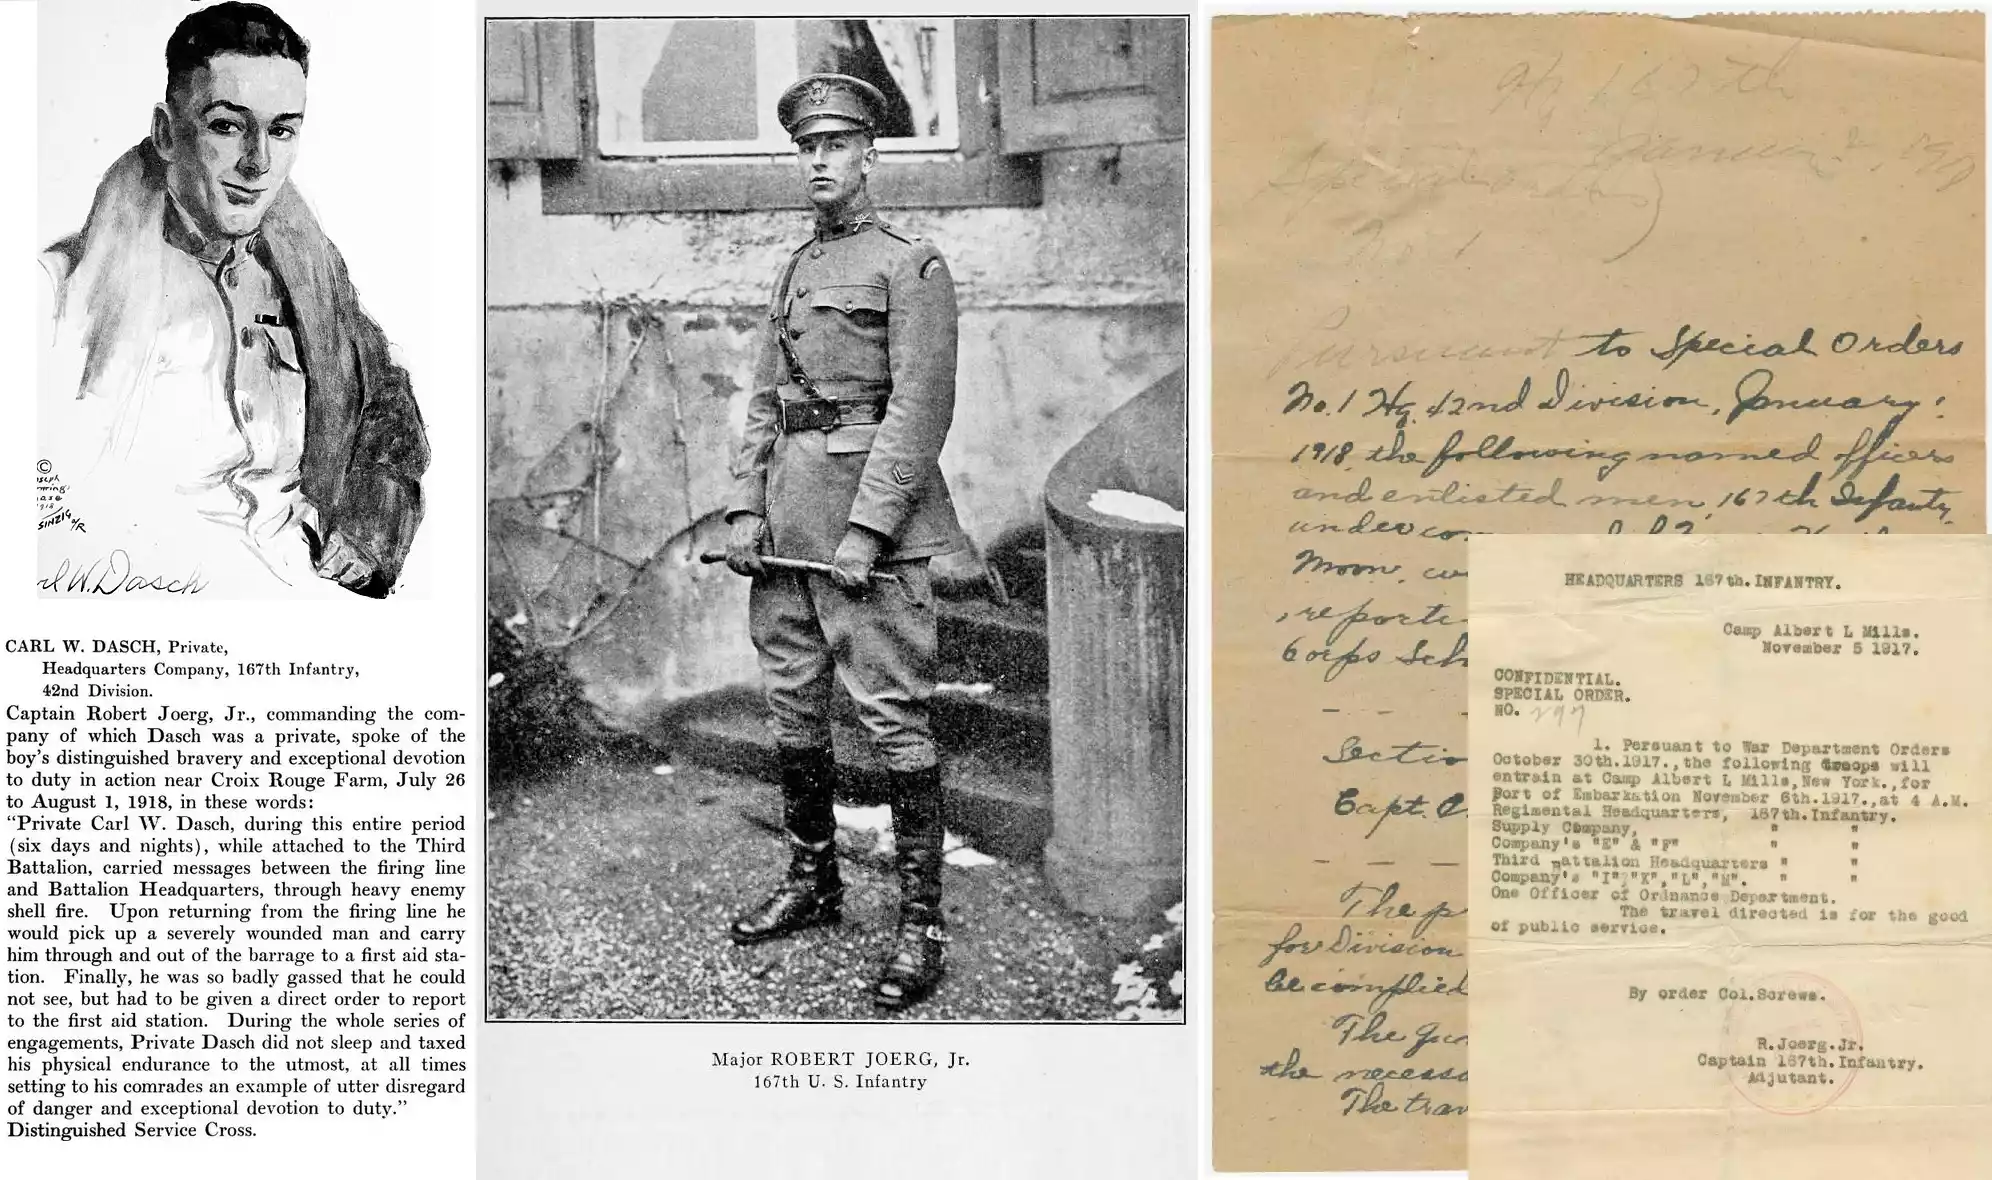 ©
SINZIG
W. Dasch
CARL W. DASCH, Private,
Headquarters Company, 167th Infantry,
42nd Division.
Captain Robert Joerg, Jr., commanding the com-
pany of which Dasch was a private, spoke of the
boy's distinguished bravery and exceptional devotion
to duty in action near Croix Rouge Farm, July 26
to August 1, 1918, in these words:
"Private Carl W. Dasch, during this entire period
(six days and nights), while attached to the Third
Battalion, carried messages between the firing line
and Battalion Headquarters, through heavy enemy
shell fire. Upon returning from the firing line he
would pick up a severely wounded man and carry
him through and out of the barrage to a first aid sta-
tion. Finally, he was so badly gassed that he could
not see, but had to be given a direct order to report
to the first aid station. During the whole series of
engagements, Private Dasch did not sleep and taxed
his physical endurance to the utmost, at all times
setting to his comrades an example of utter disregard
of danger and exceptional devotion to duty."
Distinguished Service Cross.
Major ROBERT JOERG, Jr.
167th U. S. Infantry
Hq 167th
January 2,
Special Orders
No 1
Pursuant to Special Orders
No. 1 Hq. 42nd Division, January
1918, the following named officers
and enlisted men, 167th Infanty,
under
Moon,
Capt.
The
for Division
be complied
The
the
The
HEADQUARTERS 167th. INFANTRY.
Camp Albert L Mills.
November 5 1917.
CONFIDENTIAL.
SPECIAL ORDER.
NO. 297
1. Persuant to War Department Orders
October 30th.1917.,the following troops will
entrain at Camp Albert L Mills,New York.,for
Port of Embarkation November 6th.1917.,at 4 A.M.
Regimental Headquarters, 167th.Infantry.
Supply Company, " "
Company's "E" & "F" " "
Third Battalion Headquarters " "
Company's "I","K","L","M". " "
One Officer of Ordnance Department.
The travel directed is for the good
of public service.
By order Col.Screws.
R.Joerg.Jr.
Captain 167th.Infantry.
Adjutant.